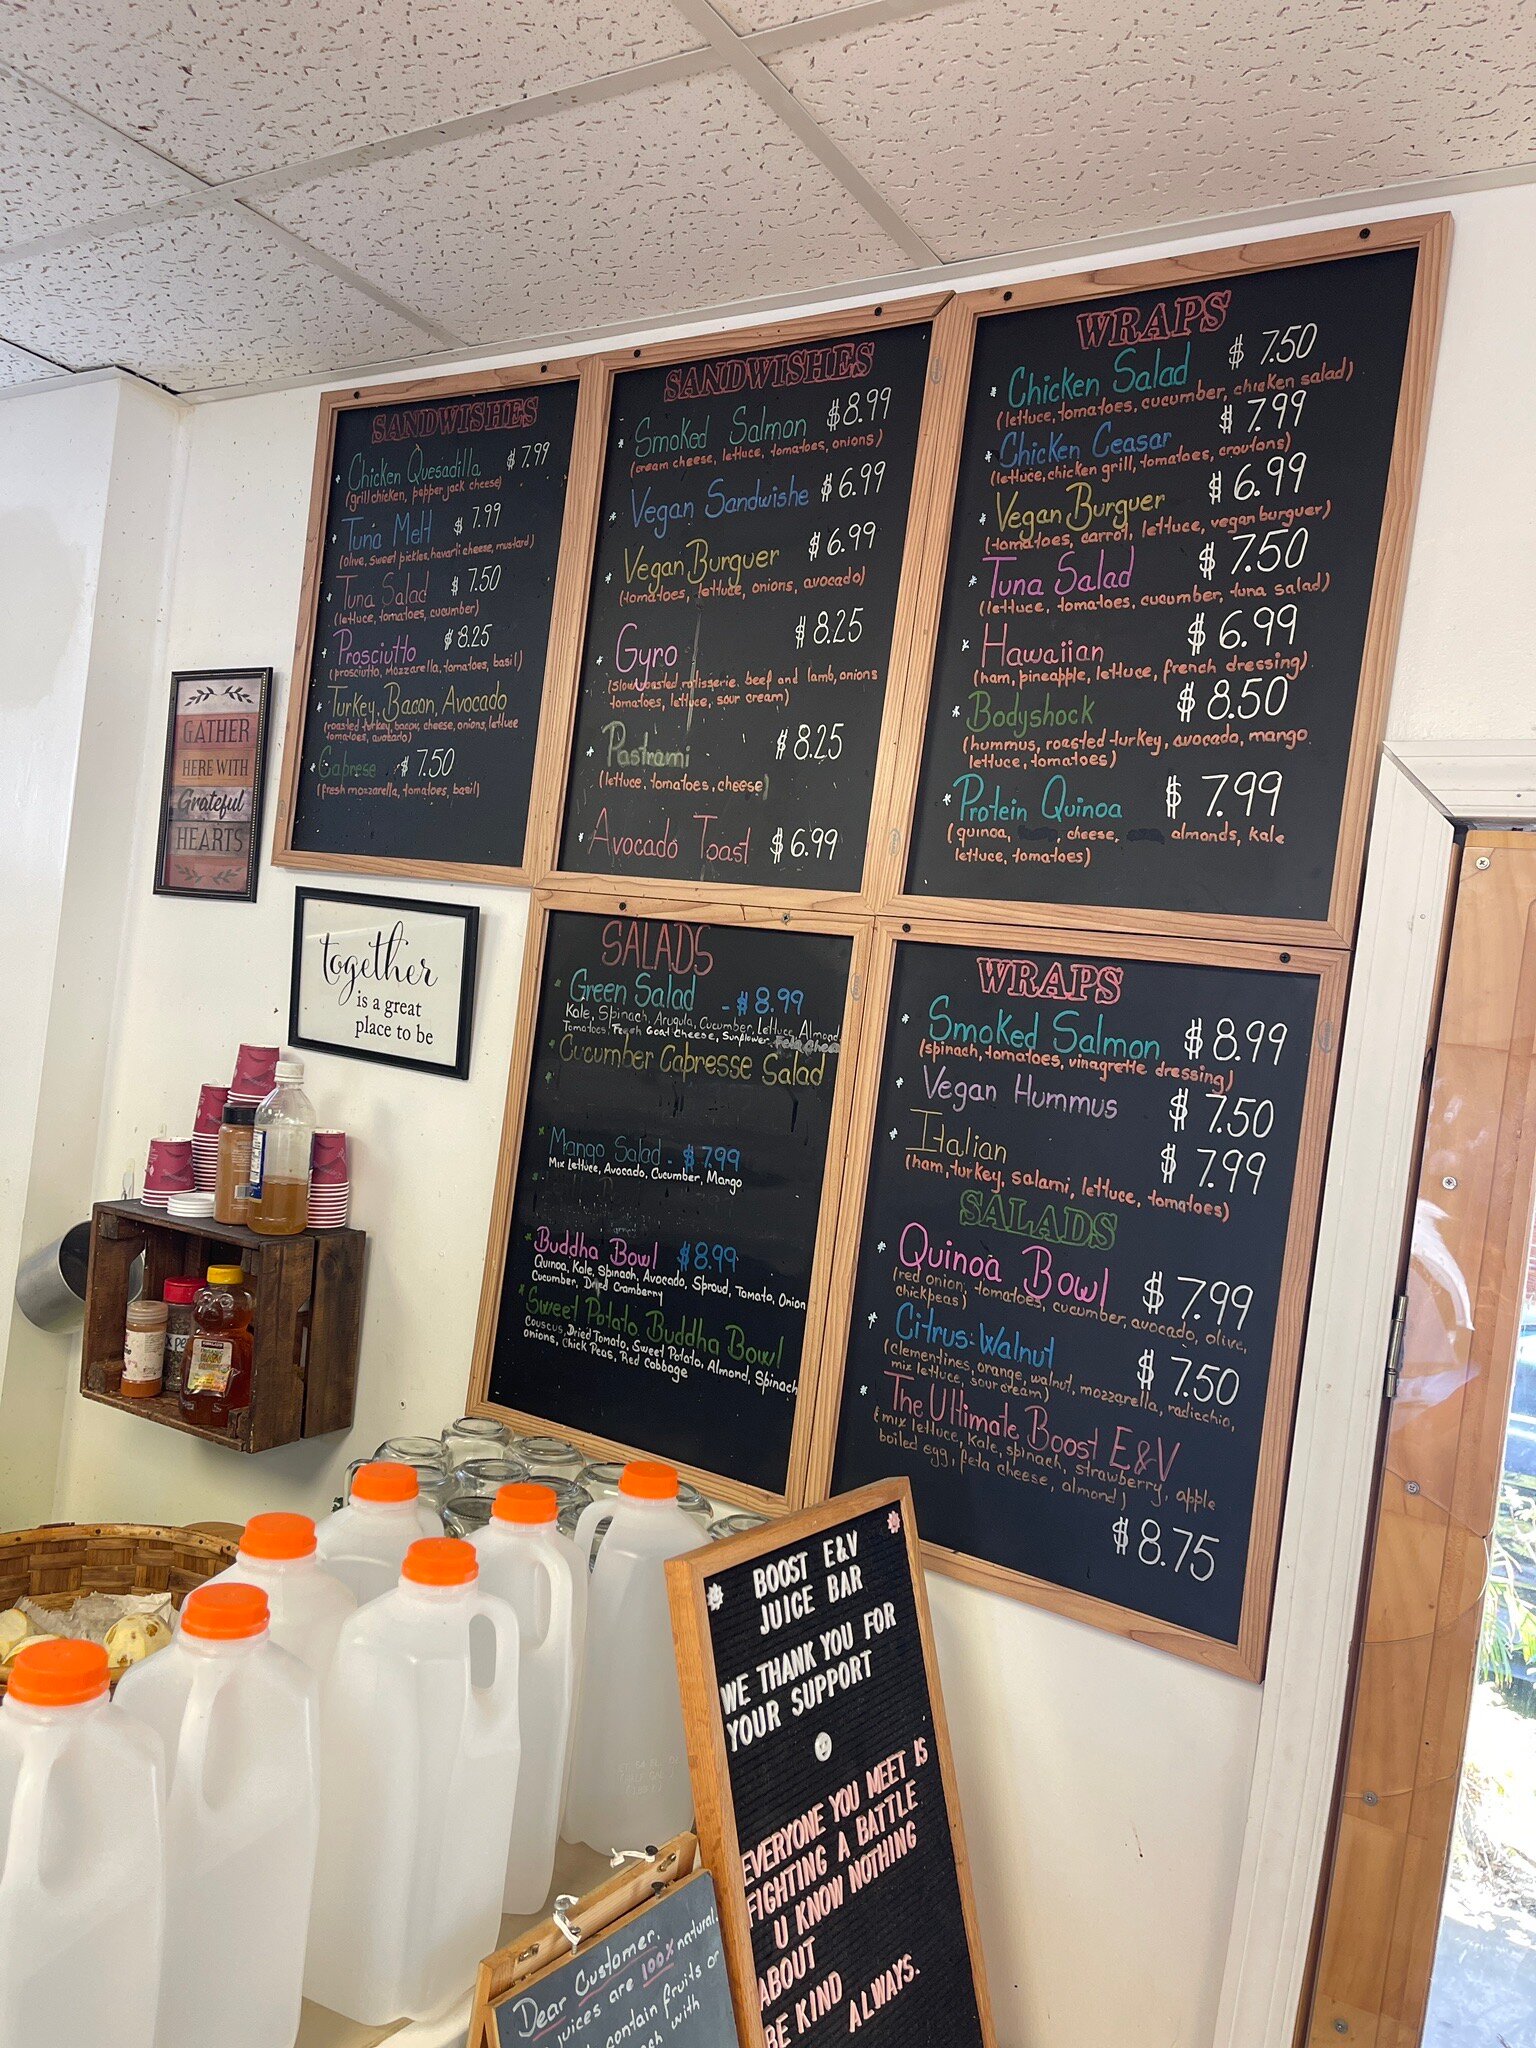 GATHER
HERE WITH
Grateful
HEARTS
together
is a great
place to be
SANDWISHES
* Chicken Quesadilla $7.99
(grill chicken, pepper jack cheese)
* Tuna Melt $7.99
(olive, sweet pickles, havarti cheese, mustard)
* Tuna Salad $7.50
(lettuce, tomatoes, cucumber)
* Prosciutto $8.25
(prosciutto, mozzarella, tomatoes, basil)
* Turkey, Bacon, Avocado
(roasted turkey, bacon, cheese, onions, lettuce
tomatoes, avocado)
* Caprese $7.50
(fresh mozzarella, tomatoes, basil)
SANDWISHES
* Smoked Salmon $8.99
(cream cheese, lettuce, tomatoes, onions)
* Vegan Sandwishe $6.99
* Vegan Burguer $6.99
(tomatoes, lettuce, onions, avocado)
* Gyro $8.25
(slow roasted rotisserie. beef and lamb, onions
tomatoes, lettuce, sour cream)
* Pastrami $8.25
(lettuce, tomatoes, cheese)
* Avocado Toast $6.99
WRAPS
* Chicken Salad $7.50
(lettuce, tomatoes, cucumber, chicken salad)
* Chicken Ceasar $7.99
(lettuce, chicken grill, tomatoes, croutons)
* Vegan Burguer $6.99
(tomatoes, carrot, lettuce, vegan burguer)
* Tuna Salad $7.50
(lettuce, tomatoes, cucumber, tuna salad)
* Hawaiian $6.99
(ham, pineapple, lettuce, french dressing)
* Bodyshock $8.50
(hummus, roasted turkey, avocado, mango
lettuce, tomatoes)
* Protein Quinoa $7.99
(quinoa, cheese, almonds, kale
lettuce, tomatoes)
SALADS
* Green Salad - $8.99
Kale, Spinach, Arugula, Cucumber, Lettuce, Almond
Tomatoes, Fresh Goat Cheese, Sunflower, Feta Chees
* Cucumber Cabresse Salad
* Mango Salad - $7.99
Mix Lettuce, Avocado, Cucumber, Mango
* Buddha Bowl $8.99
Quinoa, Kale, Spinach, Avocado, Sproud, Tomato, Onion
Cucumber, Dried Cranberry
* Sweet Potato Buddha Bowl
Couscus, Dried Tomato, Sweet Potato, Almond, Spinach
onions, Chick Peas, Red Cabbage
WRAPS
* Smoked Salmon $8.99
(spinach, tomatoes, vinagrette dressing)
* Vegan Hummus $7.50
* Italian $7.99
(ham, turkey, salami, lettuce, tomatoes)
SALADS
* Quinoa Bowl $7.99
(red onion, tomatoes, cucumber, avocado, olive,
chickpeas)
* Citrus-Walnut $7.50
(clementines, orange, walnut, mozzarella, radicchio,
mix lettuce, sour cream)
* The Ultimate Boost E&V
(mix lettuce, Kale, spinach, strawberry, apple
boiled egg, feta cheese, almond)
$8.75
BOOST E&V
JUICE BAR
WE THANK YOU FOR
YOUR SUPPORT
EVERYONE YOU MEET IS
FIGHTING A BATTLE
U KNOW NOTHING
ABOUT
BE KIND
ALWAYS.
Dear Customer,
juices are 100% natural.
contain fruits or
with